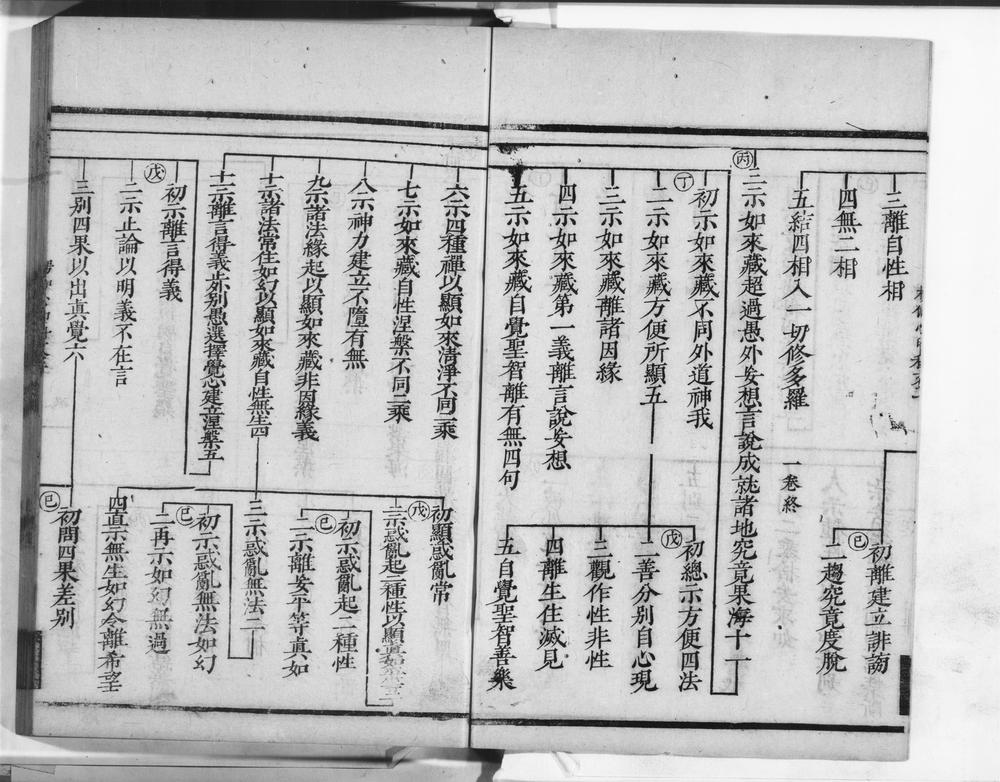 三離自性相
四無二相
五結四相入一切修多羅
一卷終
㊁ 初離建立誹謗
二趨究竟度脫
丙 二示如來藏超過愚外妄想言說成就諸地究竟果海十一
丁 初示如來藏不同外道神我
二示如來藏方便所顯五
戊 初總示方便四法
二善分別自心現
三觀作性非性
四離生住滅見
五自覺聖智善樂
三示如來藏離諸因緣
四示如來藏第一義離言說妄想
五示如來藏自覺聖智離有無四句
六示四種禪以顯如來清淨不同二乘
七示如來藏自性涅槃不同二乘
八示神力建立不墮有無
九示諸法緣起以顯如來藏非因緣義
十示諸法常住如幻以顯如來藏自性無生四
戊 初顯惑亂常
二示惑亂起二種性以顯真如
己 初示惑亂起二種性
二示離妄平等真如
三示惑亂無法二
己 初示惑亂無法如幻
二再示如幻無過
四直示無生如幻令離希望
十一示離言得義以示別愚選擇覺心建立涅槃五
戊 初示離言得義
二示止論以明義不在言
三別四果以出真覺六
己 初問四果差別